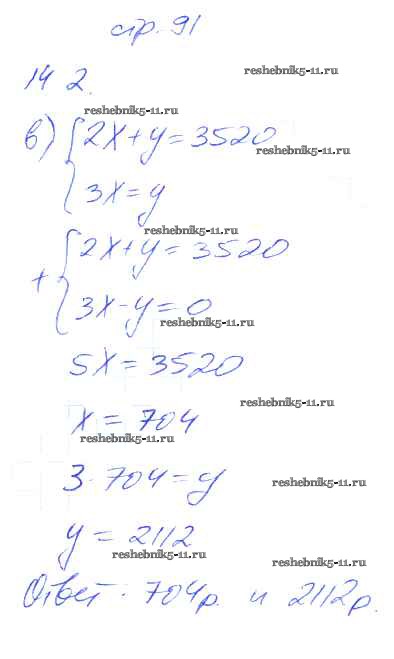 стр. 91
14 2.
reshebnik5-11.ru
reshebnik5-11.ru
в) { 2x + y = 3520
reshebnik5-11.ru
3x = y
reshebnik5-11.ru
+ { 2x + y = 3520
3x - y = 0
reshebnik5-11.ru
5x = 3520
reshebnik5-11.ru
x = 704
reshebnik5-11.ru
3 · 704 = y
reshebnik5-11.ru
y = 2112
reshebnik5-11.ru
reshebnik5-11.ru
Ответ: 704р. и 2112р.